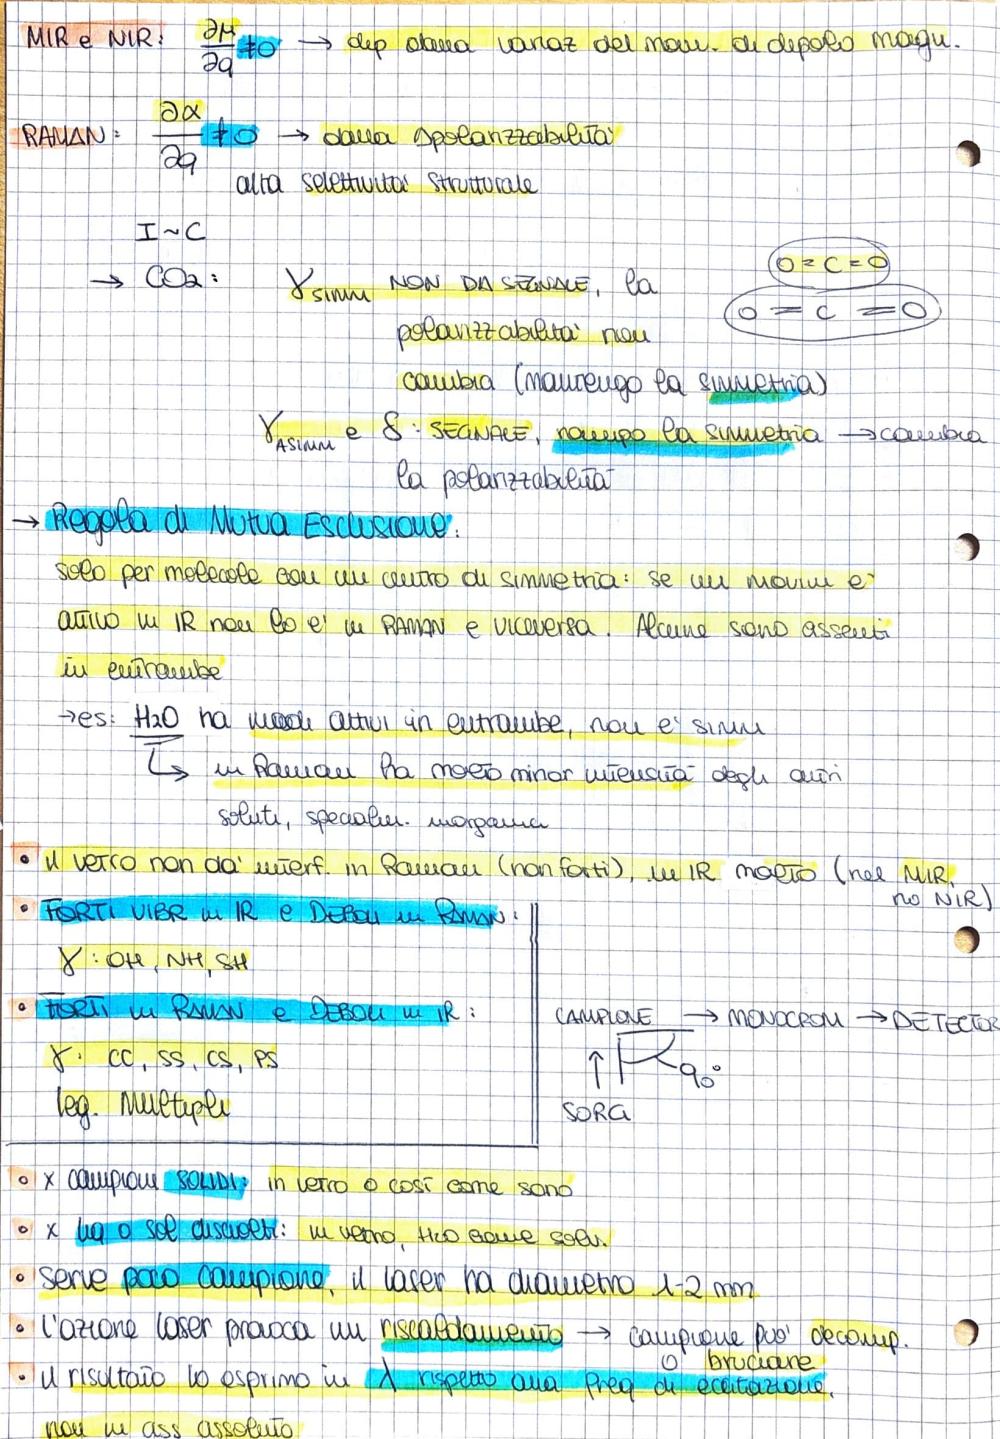 MIR e NIR: ∂μ/∂q ≠0 → dip dalla variaz del mom. di dipolo magn.
RAMAN: ∂α/∂q ≠0 → dalla polarizzabilità
alta selettività strutturale
I~C
→ CO2: γsimm NON DA SEGNALE, la
O=C=O
O=C=O
polarizzabilità non
cambia (mantengo la simmetria)
γASIMM e δ: SEGNALE, rompo la simmetria → cambia
la polarizzabilità
→ Regola di Mutua Esclusione:
solo per molecole con un centro di simmetria: se un movim è
attivo in IR non lo è in RAMAN e viceversa. Alcune sono assenti
in entrambe
→es: H2O ha modi attivi in entrambe, non è simm
↳ in Raman ha molto minor intensità degli altri
soluti, specialm. inorganici
• il vetro non dà interf. in Raman (non forti), in IR molto (nel MIR,
no NIR)
• FORTI VIBR in IR e DEBOLI in RAMAN:
γ: OH, NH, SH
• FORTI in RAMAN e DEBOLI in IR:
γ: CC, SS, CS, PS
leg. Multipli
CAMPIONE → MONOCROM → DETECTOR
↑ 90°
SORG
• x campioni SOLIDI: in vetro o così come sono
• x liq o sol disciolti: in vetro, H2O come solv.
• serve poco campione, il laser ha diametro 1-2 mm
• l'azione laser provoca un riscaldamento → campione può decomp.
o bruciare
• il risultato lo esprimo in λ rispetto alla freq di eccitazione,
non in ass assoluto